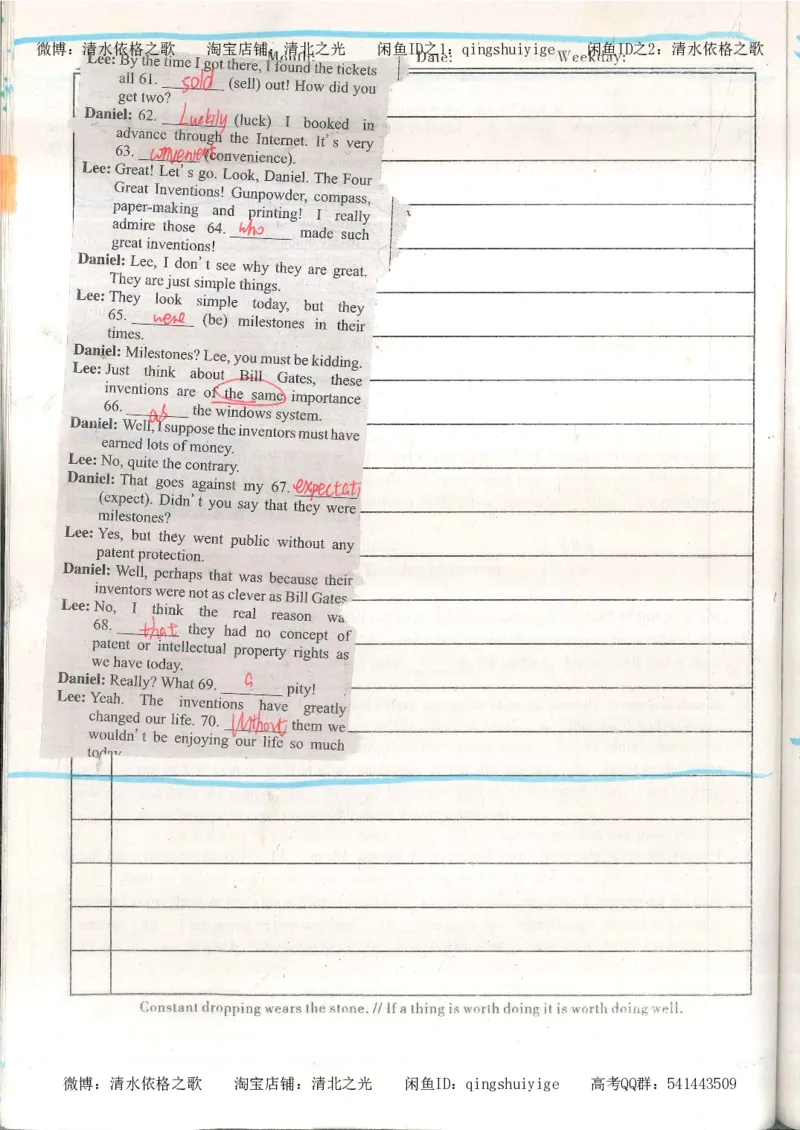 微博：清水依格之歌 淘宝店铺：清北之光 闲鱼ID之1：qingshuiyige 闲鱼ID之2：清水依格之歌
Month: Date: Weekday:
Lee: By the time I got there, I found the tickets
all 61. sold (sell) out! How did you
get two?
Daniel: 62. Luckily (luck) I booked in
advance through the Internet. It's very
63. convenient (convenience).
Lee: Great! Let's go. Look, Daniel. The Four
Great Inventions! Gunpowder, compass,
paper-making and printing! I really
admire those 64. who made such
great inventions!
Daniel: Lee, I don't see why they are great.
They are just simple things.
Lee: They look simple today, but they
65. were (be) milestones in their
times.
Daniel: Milestones? Lee, you must be kidding.
Lee: Just think about Bill Gates, these
inventions are of the same importance
66. as the windows system.
Daniel: Well, I suppose the inventors must have
earned lots of money.
Lee: No, quite the contrary.
Daniel: That goes against my 67. expectati
(expect). Didn't you say that they were
milestones?
Lee: Yes, but they went public without any
patent protection.
Daniel: Well, perhaps that was because their
inventors were not as clever as Bill Gates
Lee: No, I think the real reason wa
68. that they had no concept of
patent or intellectual property rights as
we have today.
Daniel: Really? What 69. a pity!
Lee: Yeah. The inventions have greatly
changed our life. 70. Without them we
wouldn't be enjoying our life so much
today
Constant dropping wears the stone. // If a thing is worth doing it is worth doing well.
微博：清水依格之歌 淘宝店铺：清北之光 闲鱼ID：qingshuiyige 高考QQ群：541443509